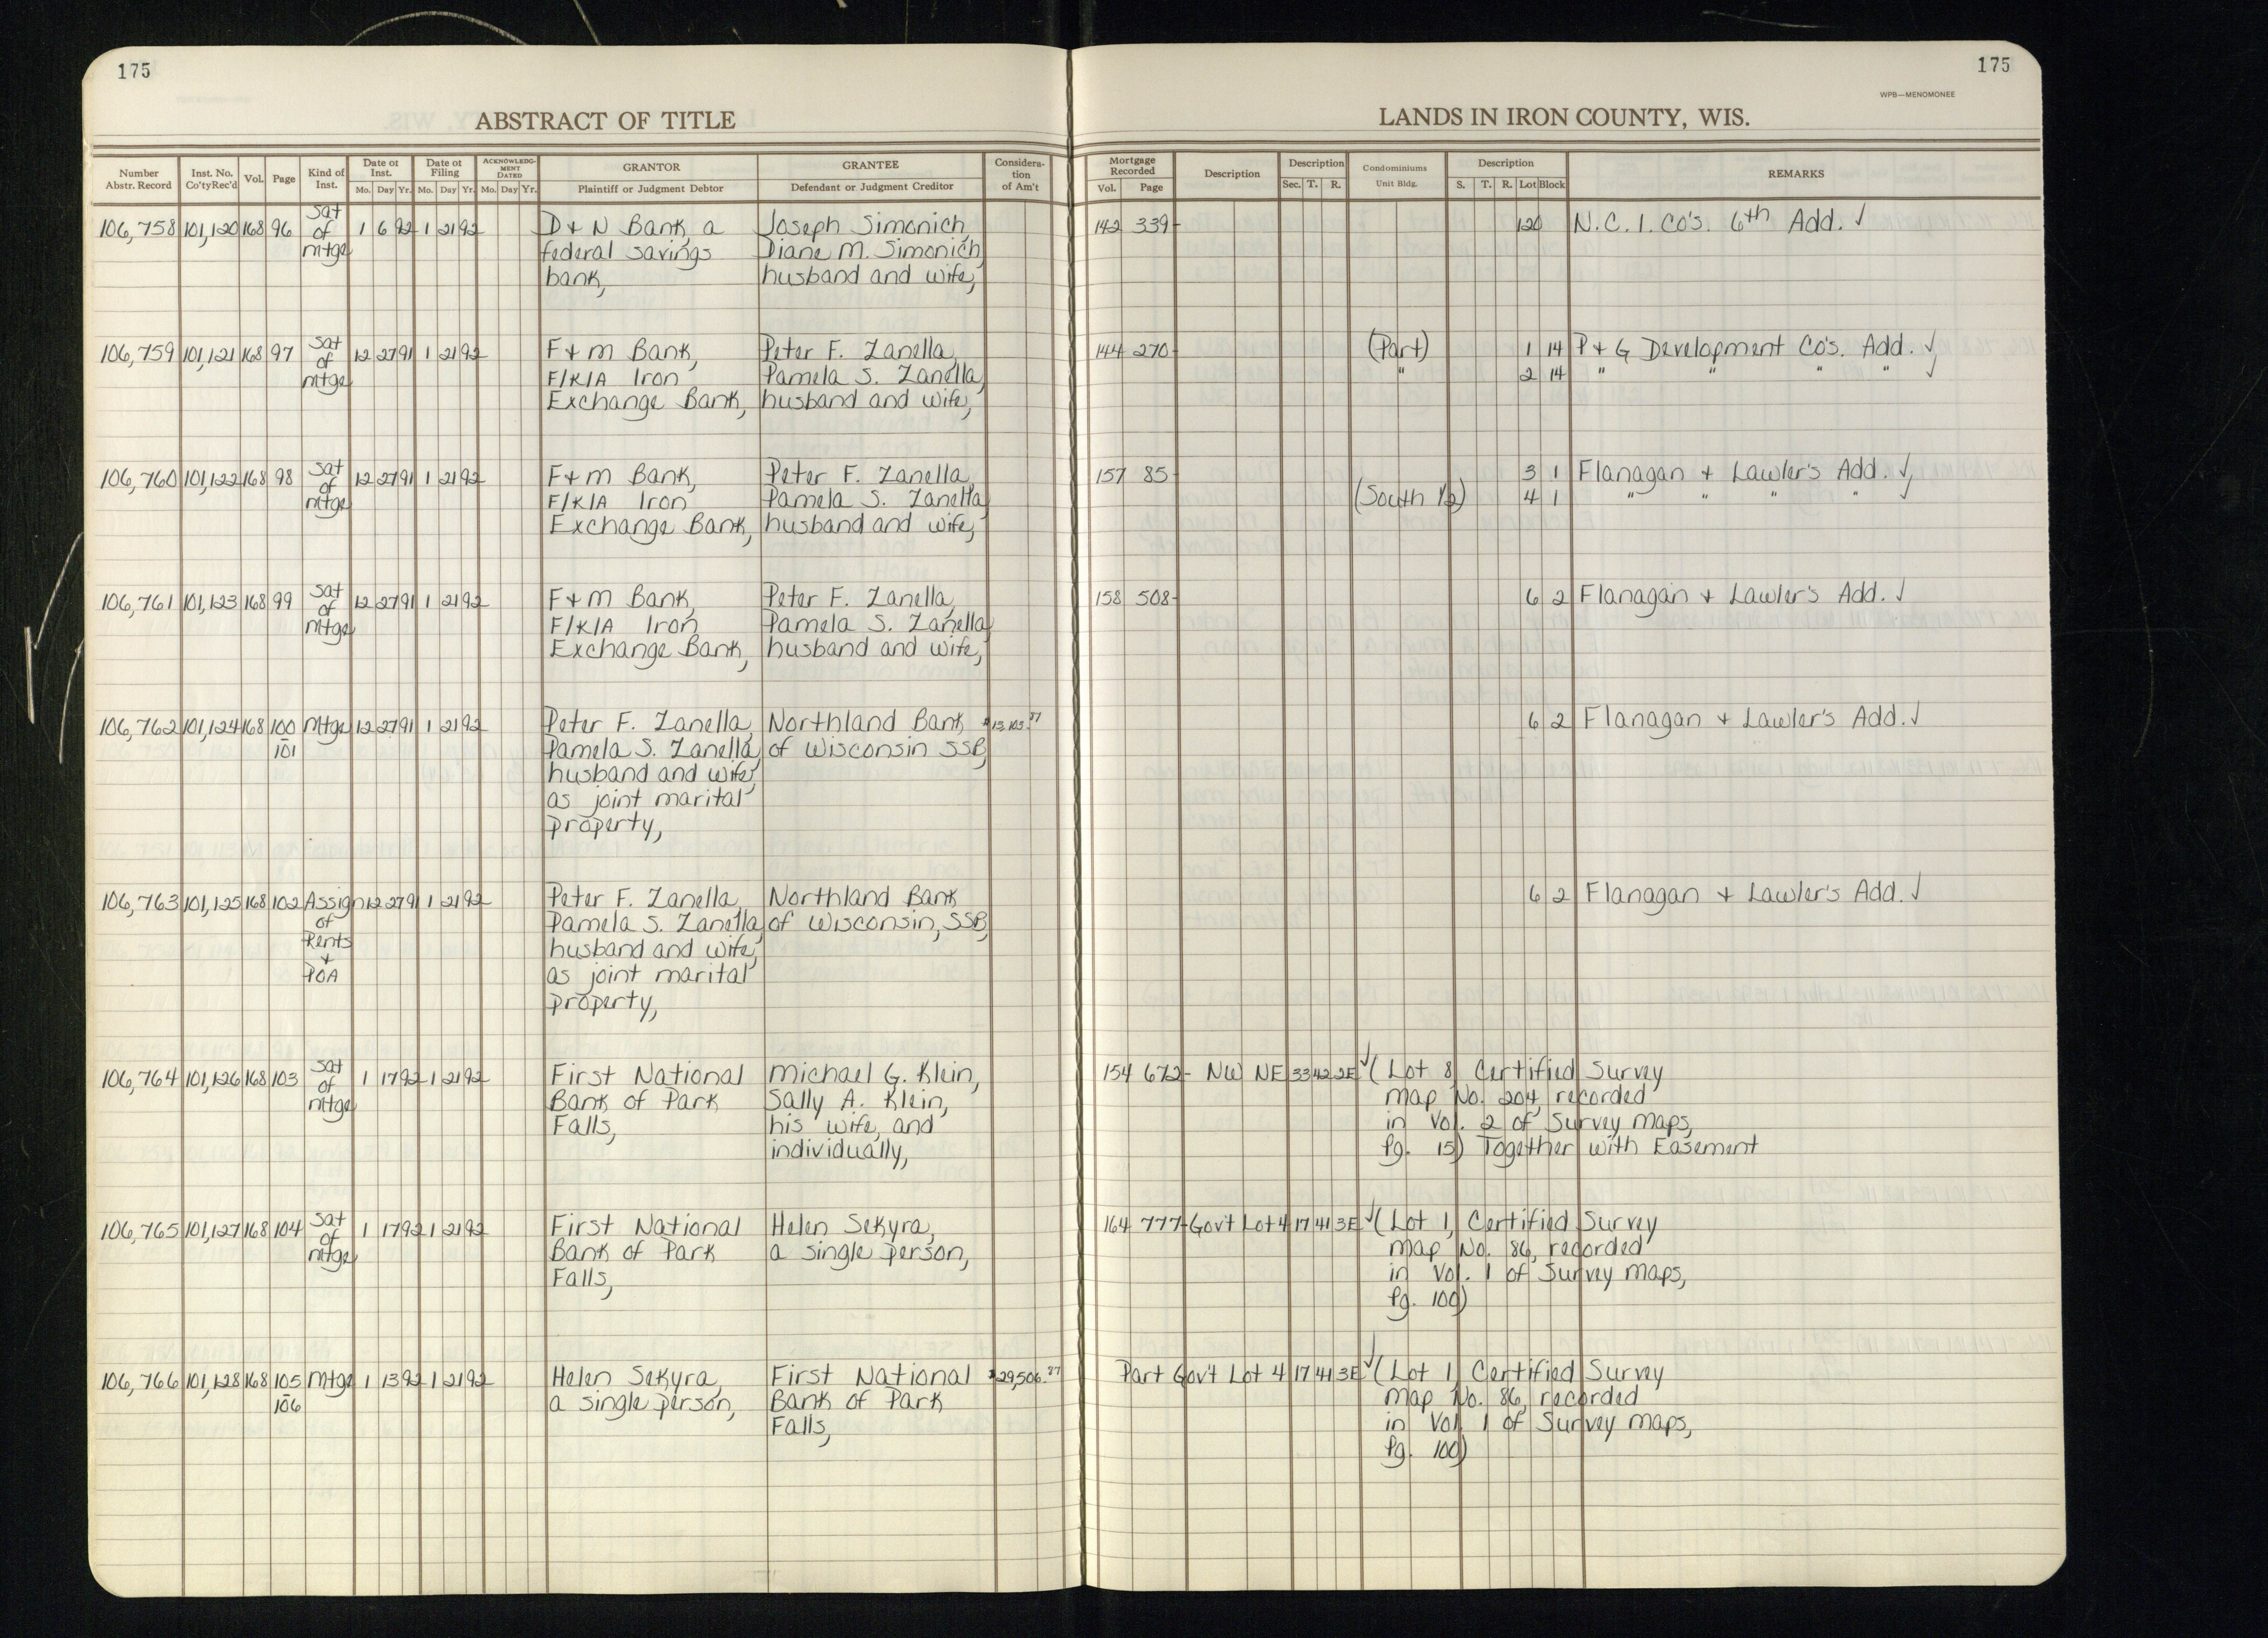 175
175
WPB—MENOMONEE
ABSTRACT OF TITLE
LANDS IN IRON COUNTY, WIS.
Number Abstr. Record
Inst. No. Co'ty Rec'd
Vol.
Page
Kind of Inst.
Date of Inst.
Mo. Day Yr.
Date of Filing
Mo. Day Yr.
ACKNOWLEDG-MENT DATED
Mo. Day Yr.
GRANTOR
Plaintiff or Judgment Debtor
GRANTEE
Defendant or Judgment Creditor
Considera-tion of Am't
Mortgage Recorded
Vol. Page
Description
Description
Sec. T. R.
Condominiums
Unit Bldg.
Description
S. T. R. Lot Block
REMARKS
106,758 101,120 168 96 Sat 1 6 92 1 21 92 D & N Bank, a Joseph Simonich, 142 339- 120 N.C.I. Co's. 6th Add. ✓
of federal savings Diane M. Simonich,
mtge bank, husband and wife,
106,759 101,121 168 97 Sat 12 27 91 1 21 92 F & M Bank, Peter F. Zanella, 144 270- (Part) 1 14 P & G Development Co's. Add. ✓
of F/K/A Iron Pamela S. Zanella, " 2 14 " " " " ✓
mtge Exchange Bank, husband and wife,
106,760 101,122 168 98 Sat 12 27 91 1 21 92 F & M Bank, Peter F. Zanella, 157 85- 3 1 Flanagan & Lawler's Add. ✓
of F/K/A Iron Pamela S. Zanella, (South 1/2) 4 1 " " " " ✓
mtge Exchange Bank, husband and wife,
106,761 101,123 168 99 Sat 12 27 91 1 21 92 F & M Bank, Peter F. Zanella, 158 508- 6 2 Flanagan & Lawler's Add. ✓
of F/K/A Iron Pamela S. Zanella,
mtge Exchange Bank, husband and wife,
106,762 101,124 168 100 Mtge 12 27 91 1 21 92 Peter F. Zanella, Northland Bank 6 2 Flanagan & Lawler's Add. ✓
-101 Pamela S. Zanella, of Wisconsin SSB,
husband and wife,
as joint marital
property,
106,763 101,125 168 102 Assign 12 27 91 1 21 92 Peter F. Zanella, Northland Bank 6 2 Flanagan & Lawler's Add. ✓
of Pamela S. Zanella, of Wisconsin, SSB,
Rents husband and wife,
& as joint marital
POA property,
106,764 101,126 168 103 Sat 1 17 92 1 21 92 First National Michael G. Klein, 154 672- NW NE 33 42 2E ✓ (Lot 8, Certified Survey
of Bank of Park Sally A. Klein, Map No. 204, recorded
mtge Falls, his wife, and in Vol. 2 of Survey Maps,
individually, Pg. 15) Together with Easement
106,765 101,127 168 104 Sat 1 17 92 1 21 92 First National Helen Sekyra, 164 777- Gov't Lot 4 17 41 3E ✓ (Lot 1, Certified Survey
of Bank of Park a single person, Map No. 86, recorded
mtge Falls, in Vol. 1 of Survey Maps,
Pg. 100)
106,766 101,128 168 105 Mtge 1 13 92 1 21 92 Helen Sekyra, First National $29,506.87 Part Gov't Lot 4 17 41 3E ✓ (Lot 1, Certified Survey
-106 a single person, Bank of Park Map No. 86, recorded
Falls, in Vol. 1 of Survey Maps,
Pg. 100)